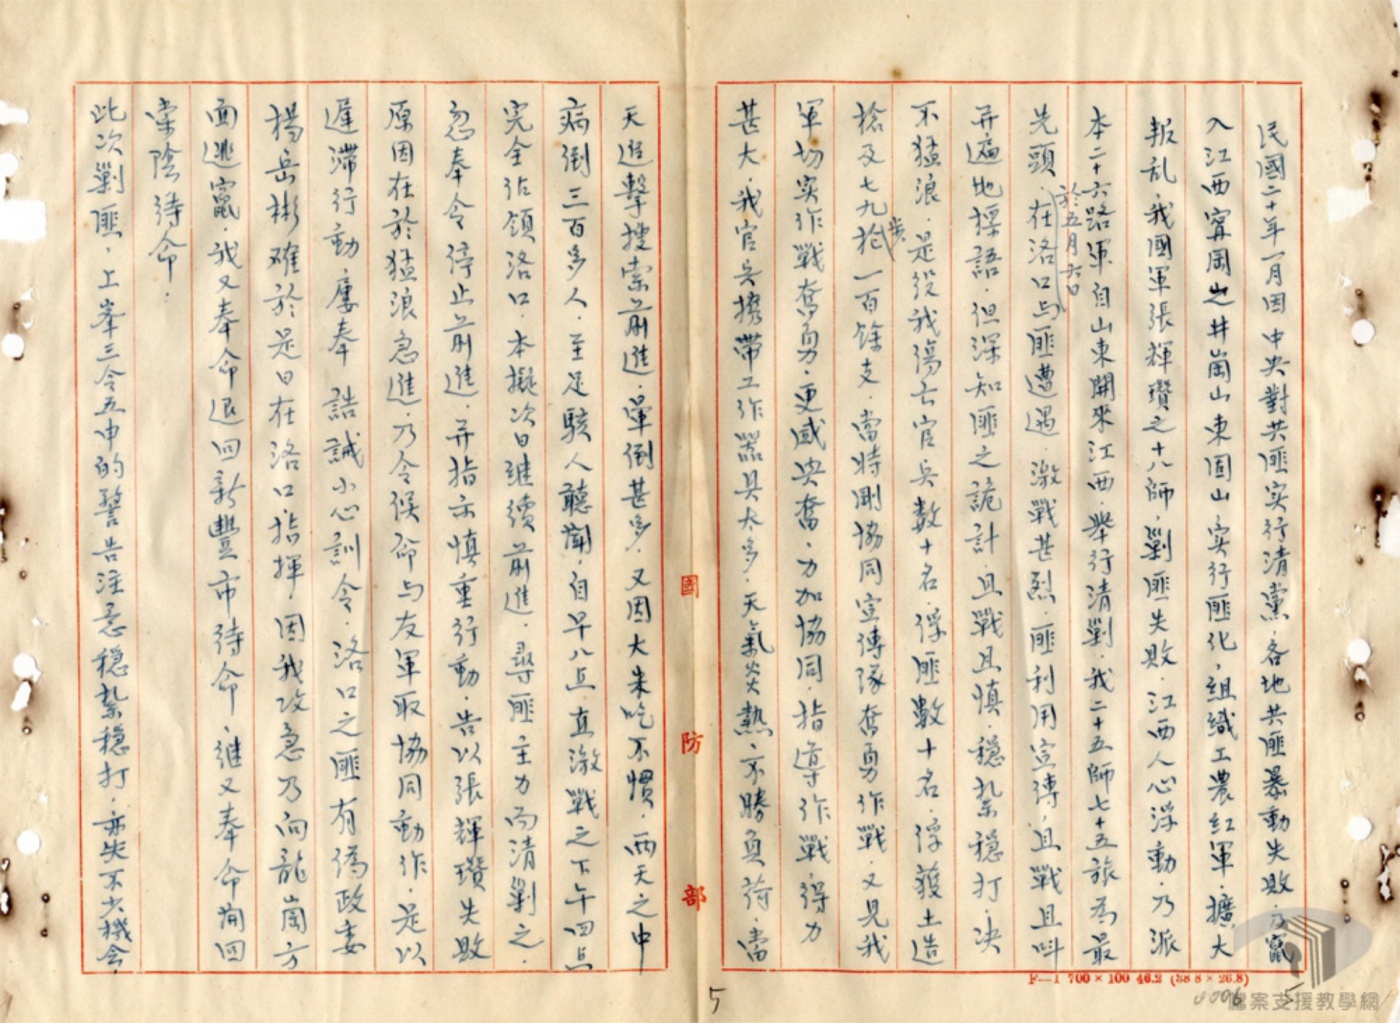 民國二十年一月因中央對共匪实行清黨各地共匪暴動失敗乃竄
入江西甯岡之井崗山東固山实行匪化組織工農紅軍擴大
叛乱我國軍張輝瓚之十八師剿匪失敗江西人心浮動乃派
本二十六路軍自山東開來江西舉行清剿我二十五師七十五旅為最
於五月六日
先頭在洛口与匪遭遇激戰甚烈匪利用宣傳且戰且叫
并遍地標語但深知匪之詭計且戰且慎穩紮穩打决
不猛浪是役我傷亡官兵數十名俘匪數十名俘獲土造
槍及七九槍一百餘支當時剛協同宣傳隊奮勇作戰又見我
軍切实作戰奮勇更感兴奮力加協同指導作戰得力
甚大我官兵携帶工作器具太多天氣炎熱不勝負荷當
天進擊搜索前進暈倒甚多又因大米吃不慣兩天之中
病倒三百多人至足駭人聽聞自早八点直激戰之下午四点
完全佔領洛口本擬次日继續前進尋匪主力而清剿之
忽奉令停止前進并指示慎重行動告以張輝瓚失敗
原因在於猛浪急進乃令候命与友軍取協同動作是以
遲滯行動屢奉 誥誡小心訓令洛口之匪有偽政委
楊岳彬確於是日在洛口指揮因我攻急乃向龍崗方
面逃竄我又奉命退回新豐市待命继又奉命
棠陰待命：
此次剿匪上峯三令五申的警告注意穩紮穩打亦失不少機會
國防部
F—1 700×100 46.2 (38.8×26.8)
5
5
0006
檔案支援教學網